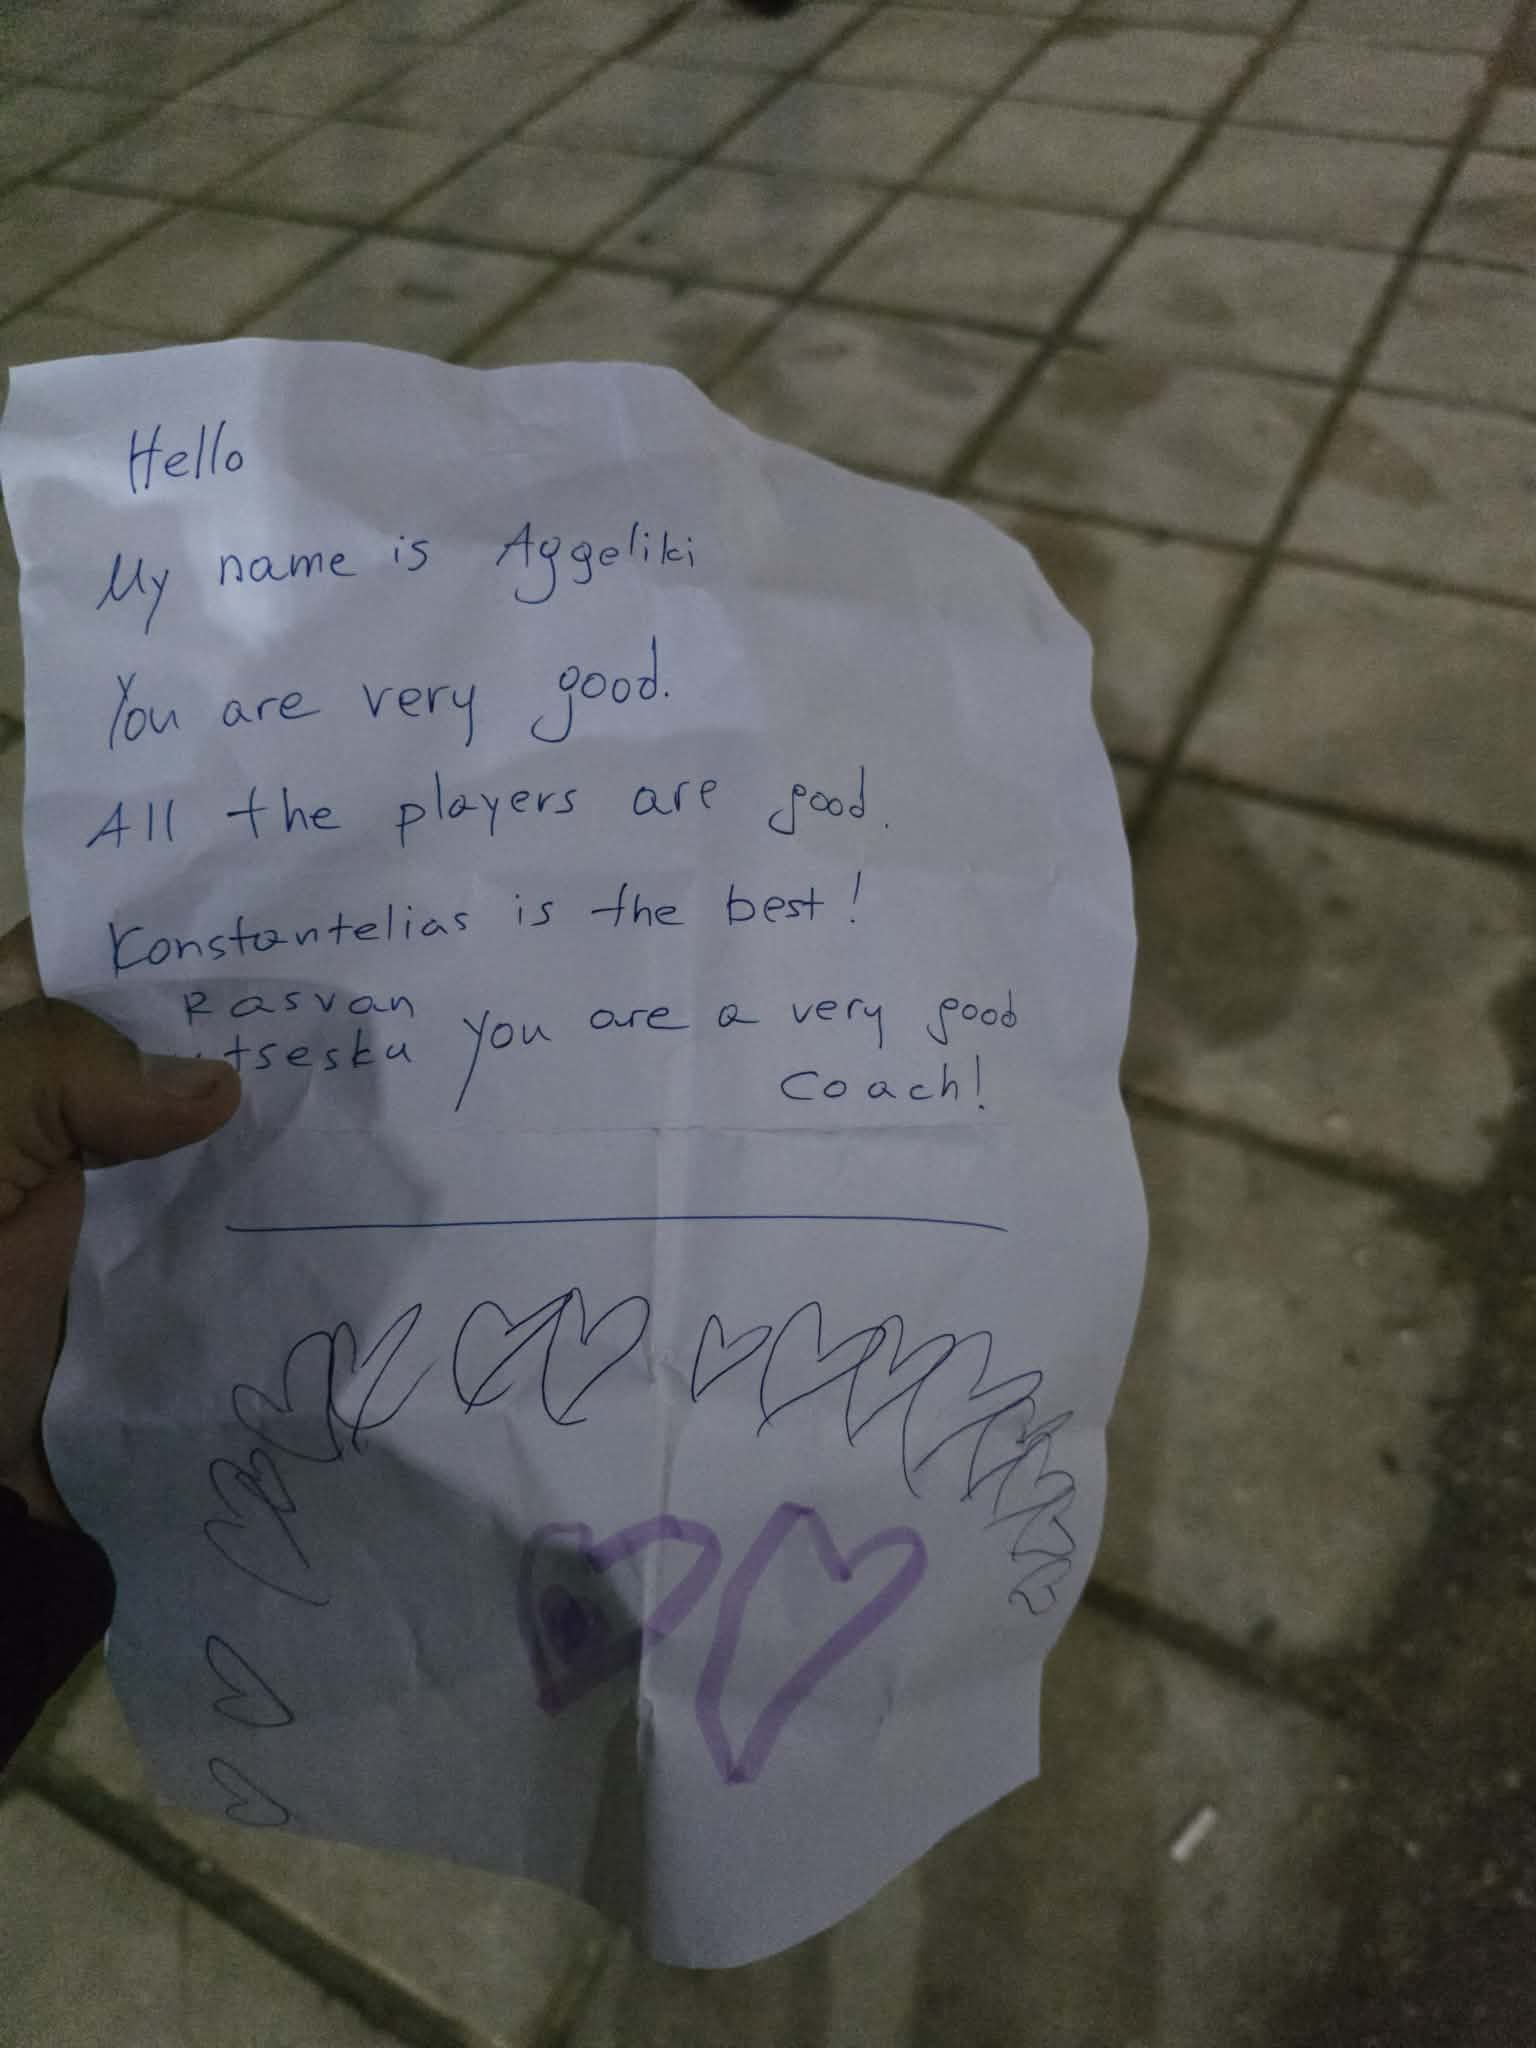 Hello
My name is Aggeliki
You are very good.
All the players are good.
Konstantelias is the best!
Rasvan
tsesku you are a very good
coach!